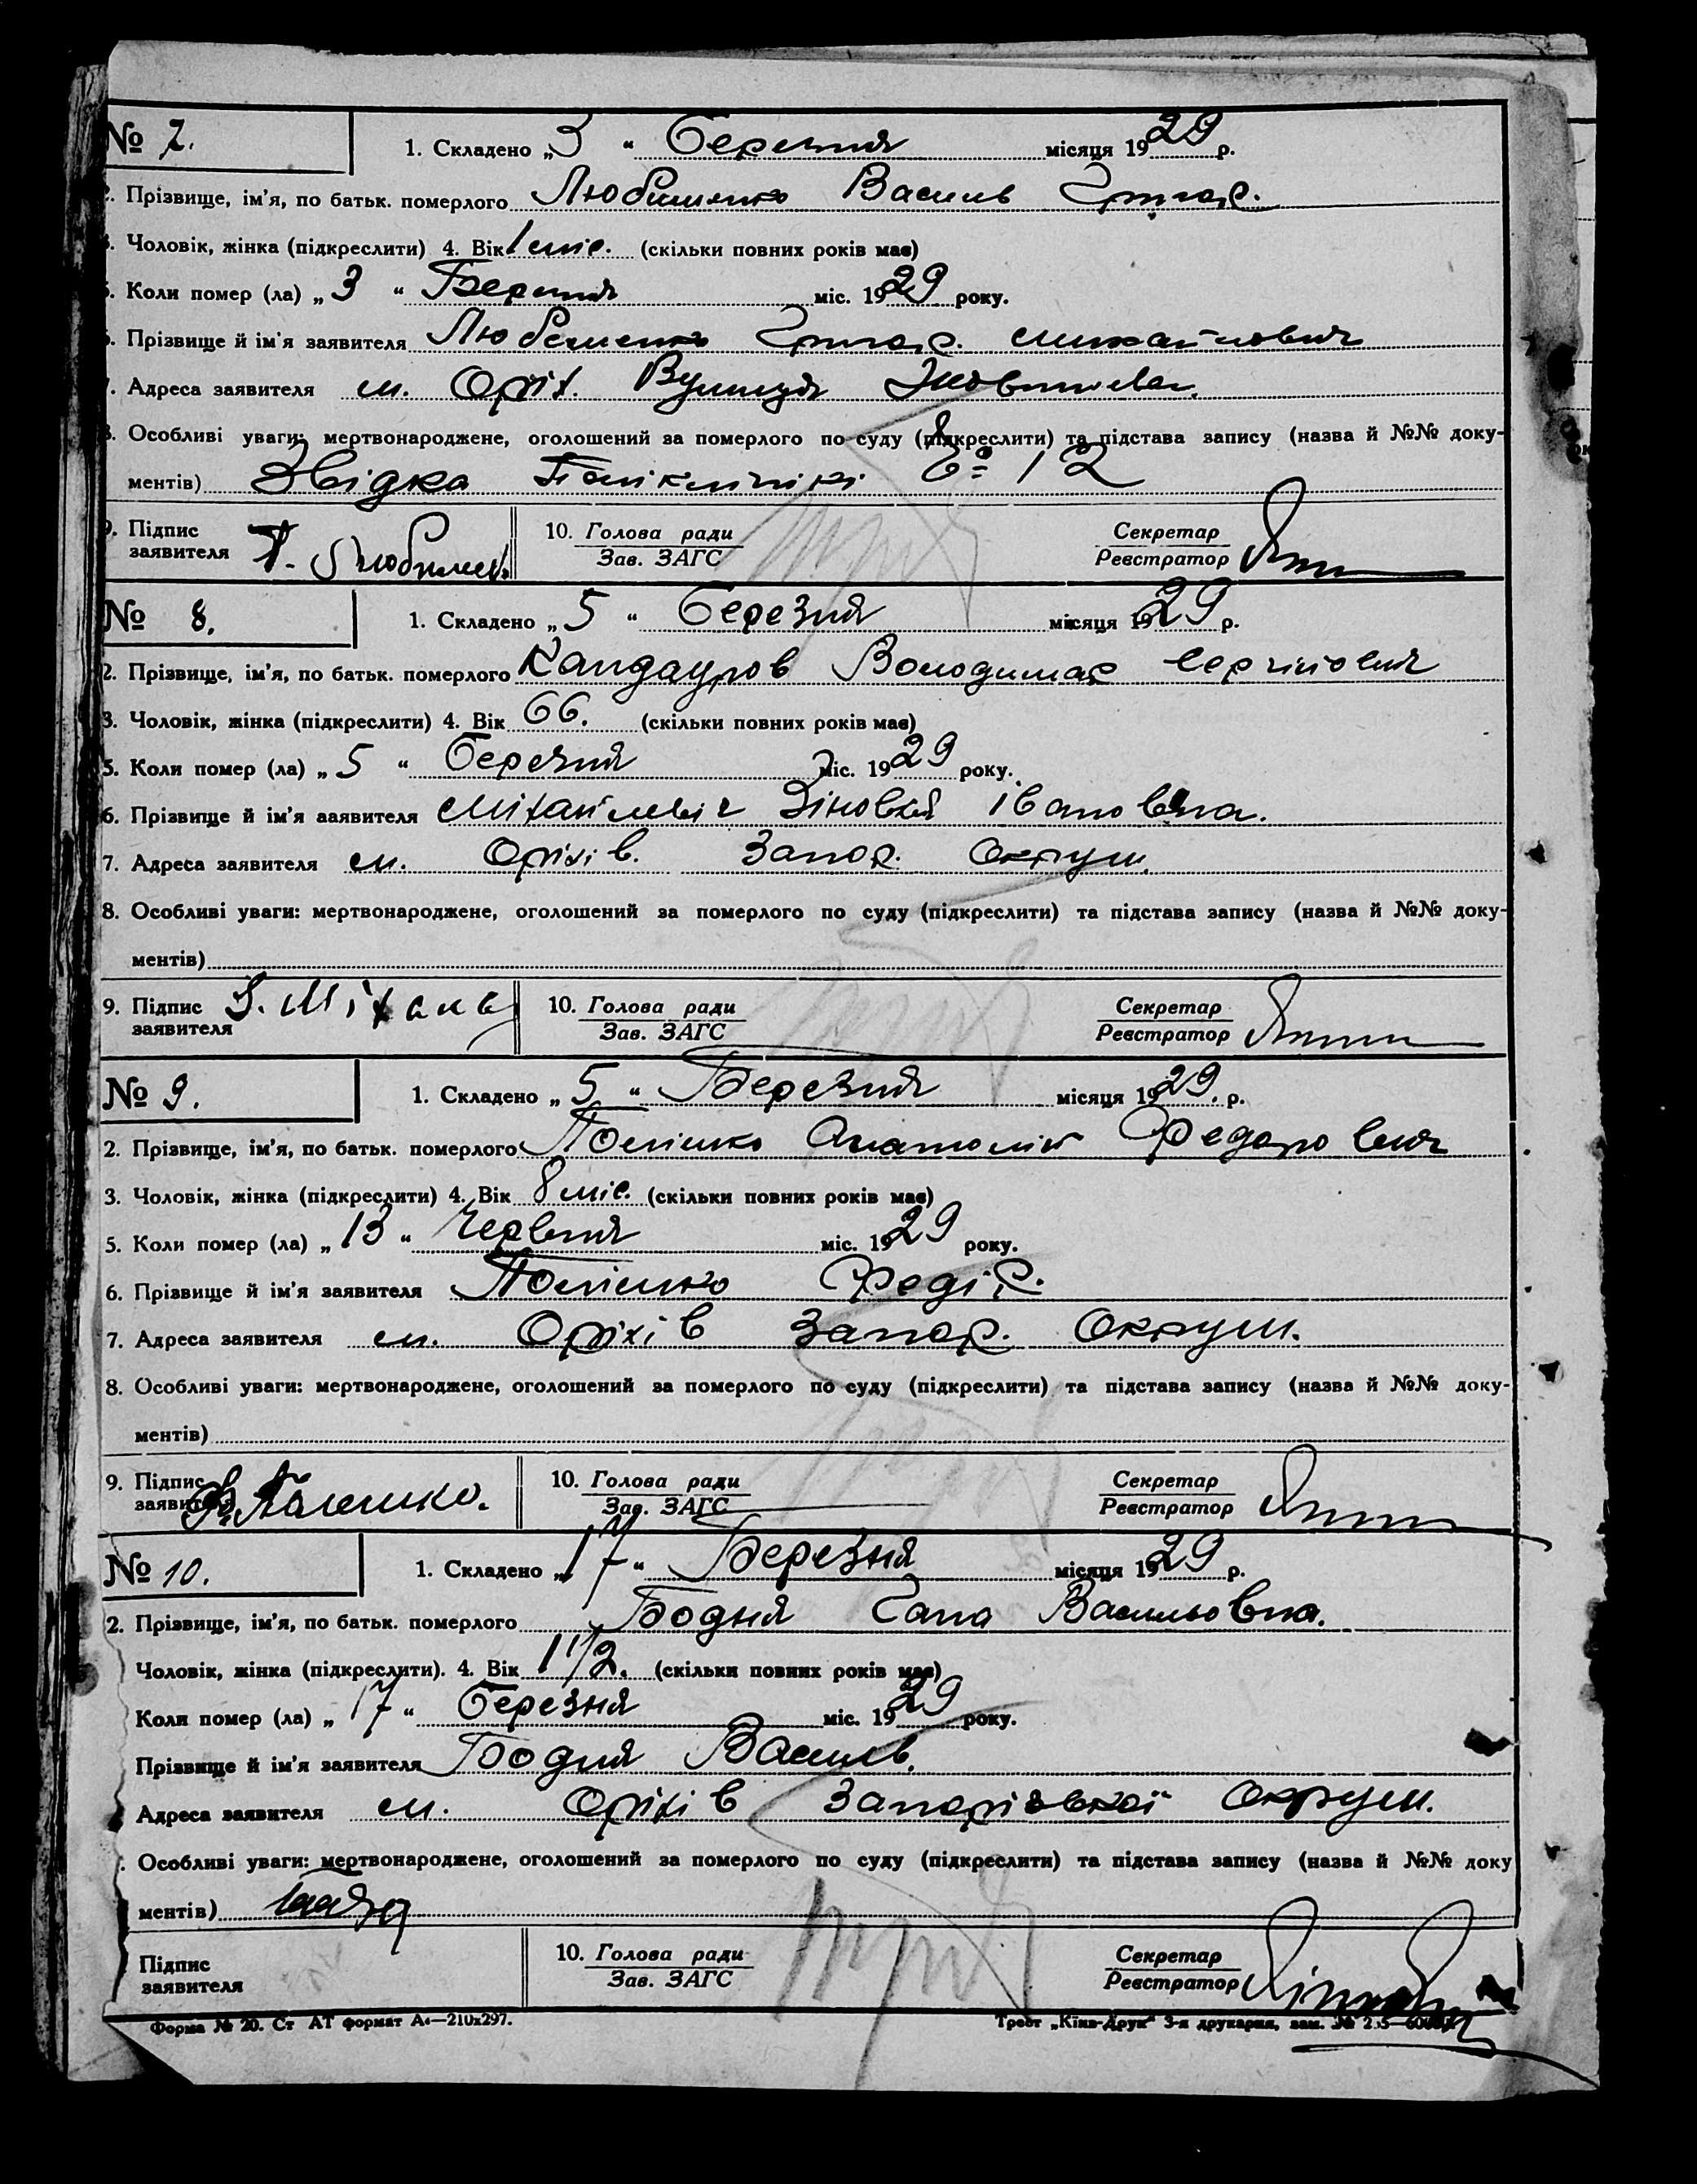 № 7.
1. Складено „3“ Березня місяця 1929 р.
2. Прізвище, ім'я, по батьк. померлого Любименко Василь Григор.
3. Чоловік, жінка (підкреслити) 4. Вік 1 міс. (скільки повних років має)
5. Коли помер (ла) „3“ Березня міс. 1929 року.
6. Прізвище й ім'я заявителя Любименко Григор. Михайлович
7. Адреса заявителя м. Оріх. Вулиця
8. Особливі уваги: мертвонароджене, оголошений за померлого по суду (підкреслити) та підстава запису (назва й №№ доку-
ментів) Звідка 12
9. Підпис заявителя
10. Голова ради Зав. ЗАГС
Секретар Реєстратор
№ 8.
1. Складено „5“ Березня місяця 1929 р.
2. Прізвище, ім'я, по батьк. померлого Кандауров Володимер Сергійович
3. Чоловік, жінка (підкреслити) 4. Вік 66. (скільки повних років має)
5. Коли помер (ла) „5“ березня міс. 1929 року.
6. Прізвище й ім'я заявителя Івановна.
7. Адреса заявителя м. Оріхів. Запор. Округи.
8. Особливі уваги: мертвонароджене, оголошений за померлого по суду (підкреслити) та підстава запису (назва й №№ доку-
ментів)
9. Підпис заявителя
10. Голова ради Зав. ЗАГС
Секретар Реєстратор
№ 9.
1. Складено „5“ Березня місяця 1929. р.
2. Прізвище, ім'я, по батьк. померлого Полішко Анатолій Федорович
3. Чоловік, жінка (підкреслити) 4. Вік 8 міс. (скільки повних років має)
5. Коли помер (ла) „13“ Червня міс. 1929 року.
6. Прізвище й ім'я заявителя Полішко Федір.
7. Адреса заявителя м. Оріхів Запор. Округи.
8. Особливі уваги: мертвонароджене, оголошений за померлого по суду (підкреслити) та підстава запису (назва й №№ доку-
ментів)
9. Підпис заявителя
10. Голова ради Зав. ЗАГС
Секретар Реєстратор
№ 10.
1. Складено „17“ Березня місяця 1929 р.
2. Прізвище, ім'я, по батьк. померлого Бодня Васильовна.
Чоловік, жінка (підкреслити). 4. Вік 1 1/2. (скільки повних років має)
Коли помер (ла) „17“ березня міс. 1929 року.
Прізвище й ім'я заявителя Бодня Василь.
Адреса заявителя м. Оріхів Запорізької Округи.
Особливі уваги: мертвонароджене, оголошений за померлого по суду (підкреслити) та підстава запису (назва й №№ доку
ментів)
Підпис заявителя
10. Голова ради Зав. ЗАГС
Секретар Реєстратор
Форма № 20. Ст АТ формат А4—210x297.
Трест „Київ-Друк“ 3-я друкарня, зам. №